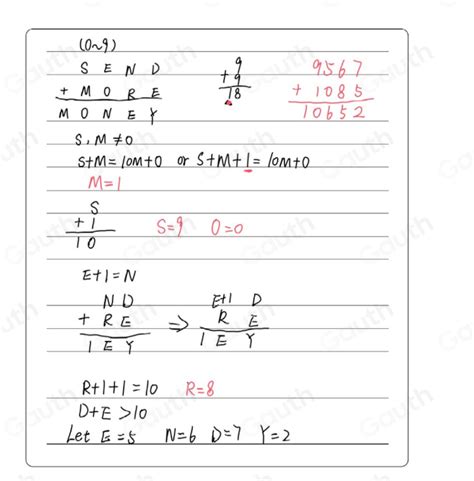 (0~9)
S E N D
+ M O R E
M O N E Y
9
+ 9
18
9567
+ 1085
10652
S, M ≠0
S+M=10M+0 or S+M+1=10M+0
M=1
S
+ 1
10
S=9 O=0
E+1=N
N D
+ R E
1 E Y
⇒
E+1 D
R E
1 E Y
R+1+1=10 R=8
D+E >10
Let E=5 N=6 D=7 Y=2
Gauth